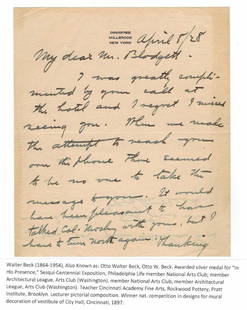 INNISFREE
MILLBROOK
NEW YORK
April 8/28
My dear Mr. Blodgett.
I was greatly compli-
mented by your call at
the hotel and I regret I missed
seeing you. When we made
the attempt to reach you
over the phone there seemed
to be no one to take the
message to you. It would
have been pleasant to have
talked Col. with you, but I
have to turn North again. Thanking
Walter Beck (1864-1954), Also Known as: Otto Walter Beck, Otto W. Beck. Awarded silver medal for "In
His Presence," Sesqui-Centennial Exposition, Philadelphia Life member National Arts Club; member
Architectural League, Arts Club (Washington). member National Arts Club, member Architectural
League, Arts Club (Washington). Teacher Cincinnati Academy Fine Arts, Rookwood Pottery, Pratt
Institute, Brooklyn. Lecturer pictorial composition. Winner nat. competition in designs for mural
decoration of vestibule of City Hall, Cincinnati, 1897.